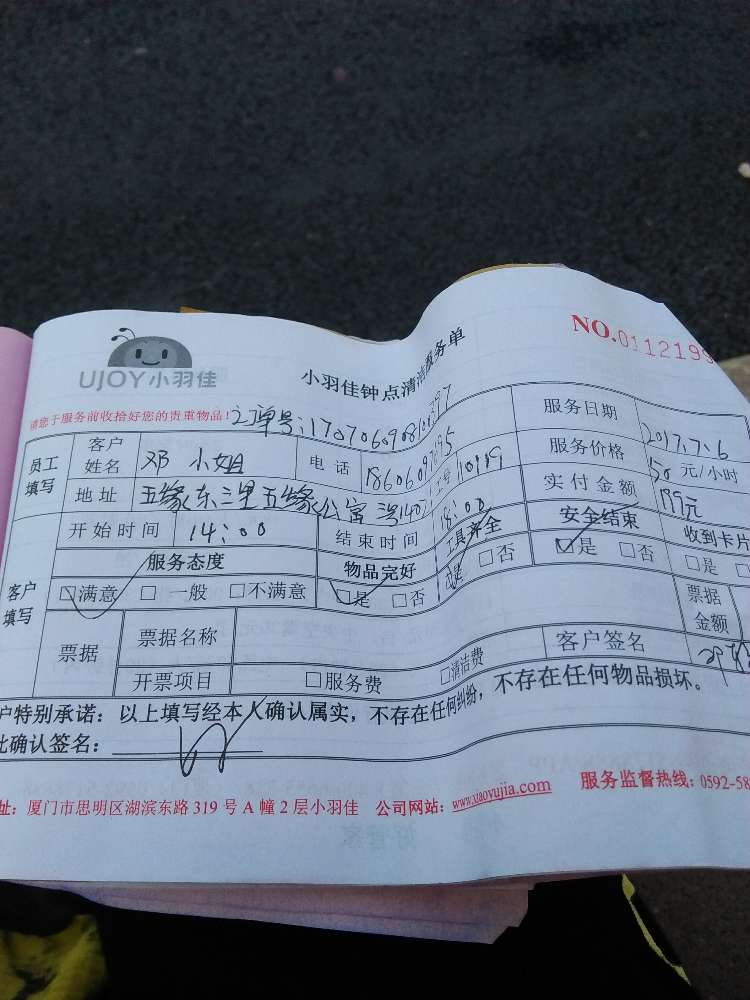 UJOY小羽佳
小羽佳钟点清洁服务单
NO.0112199
请您于服务前收拾好您的贵重物品!
服务日期 2017.7.6
员工填写
客户姓名 邓 小姐
电话
服务价格 50 元/小时
地址 五缘东三里五缘公寓
实付金额 199元
开始时间 14:00
结束时间 18:00
服务态度 物品完好 工具齐全 安全结束 收到卡片
客户填写
☑满意 □一般 □不满意 ☑是 □否 ☑是 □否 ☑是 □否 □是
票据 票据名称 票据金额
开票项目 □服务费 □清洁费 客户签名
户特别承诺:以上填写经本人确认属实,不存在任何纠纷,不存在任何物品损坏。
此确认签名:
址:厦门市思明区湖滨东路 319 号 A 幢 2 层小羽佳 公司网站:www.xiaoyujia.com 服务监督热线:0592-58